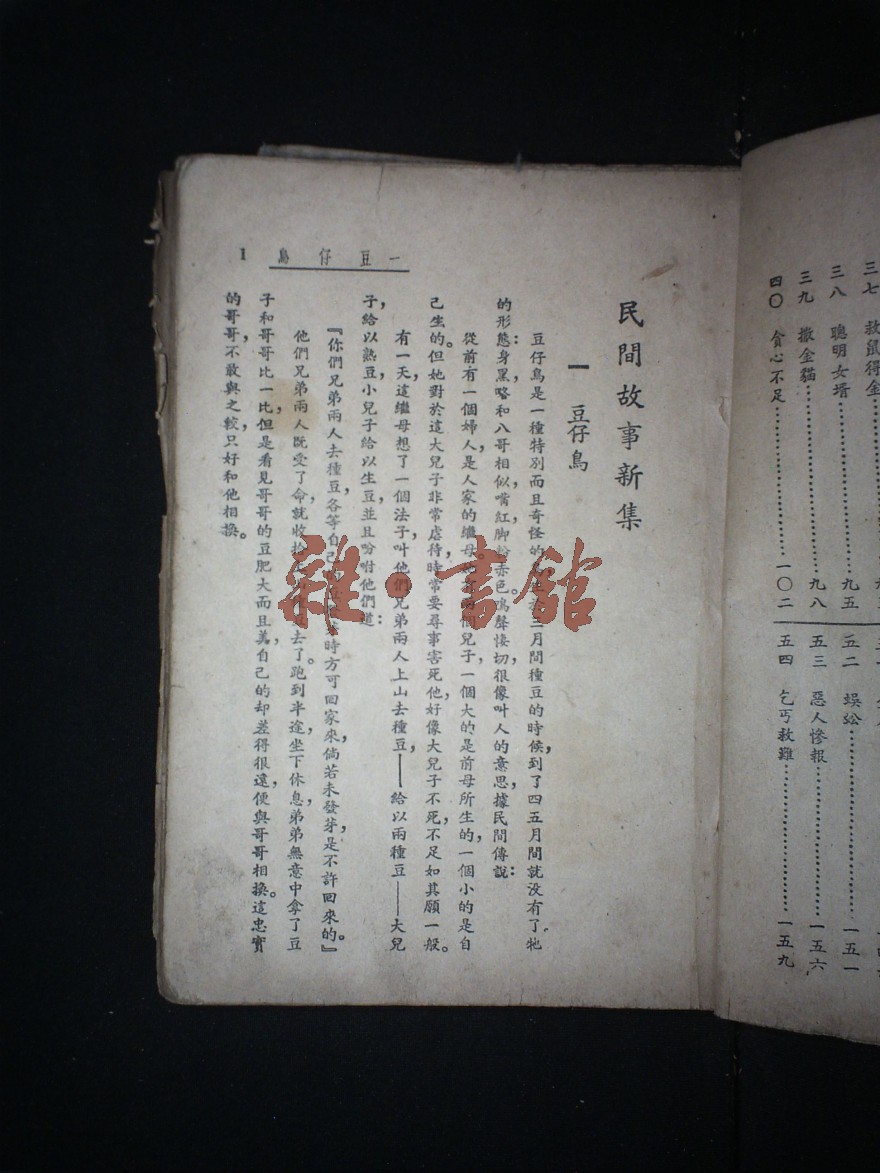 三七 救鼠得金
三八 聰明女壻……九五
三九 撒金貓……九八
四〇 貪心不足……一〇二
五二 蜈蚣……一五一
五三 惡人慘報……一五六
五四 乞丐救難……一五九
民間故事新集
一 豆仔鳥
豆仔鳥是一種特別而且奇怪的三月間種豆的時候,到了四五月間就没有了牠
的形態:身黑,略和八哥相似,嘴紅脚赤色。鳴聲悽切,很像叫人的意思,據民間傳說:
從前有一個婦人,是人家的繼母。個兒子,一個大的是前母所生的,一個小的是自
己生的。但她對於這大兒子非常虐待,時常要尋事害死他,好像大兒子不死,不足如其願一般。
有一天,這繼母想了一個法子,叫他們兄弟兩人上山去種豆,——給以兩種豆——大兒
子,給以熟豆,小兒子給以生豆,並且吩咐他們道:
『你們兄弟兩人去種豆,各等自己時方可回家來,倘若未發芽,是不許回來的。』
他們兄弟兩人旣受了命,就收拾去了。跑到半途,坐下休息,弟弟無意中拿了豆
子和哥哥比一比,但是看見哥哥的豆肥大而且美,自己的却差得很遠,便與哥哥相換。這忠實
的哥哥,不敢與之較,只好和他相換。
一豆仔鳥
1
雜·書館